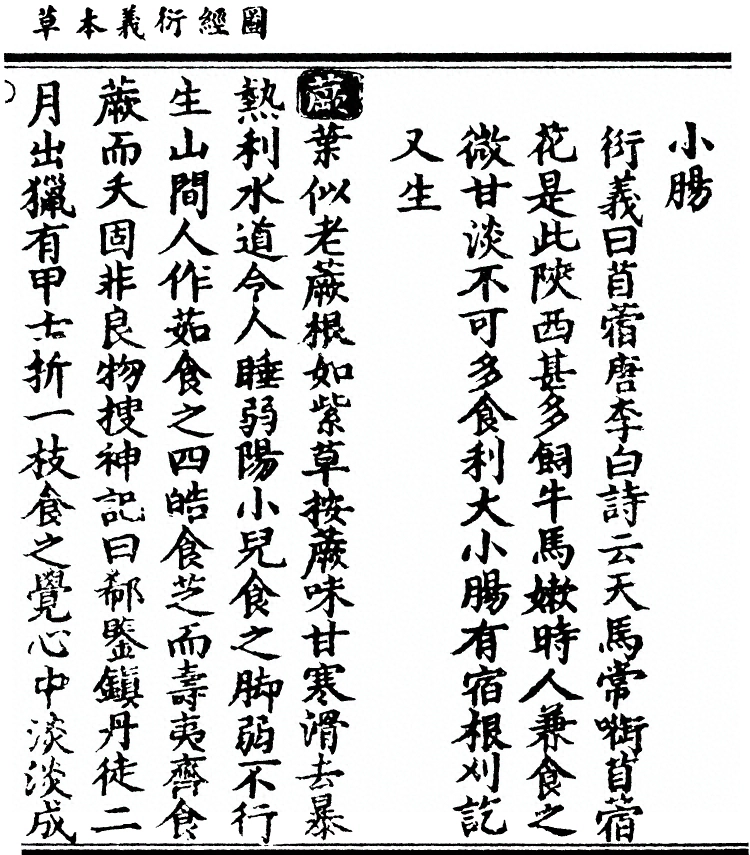 圖經衍義本草
小腸
衍義曰苜蓿唐李白詩云天馬常啣苜蓿
花是此陝西甚多飼牛馬嫩時人兼食之
微甘淡不可多食利大小腸有宿根刈訖
又生
蕨葉似老蕨根如紫草按蕨味甘寒滑去暴
熱利水道令人睡弱陽小兒食之脚弱不行
生山間人作茹食之四皓食芝而壽夷齊食
蕨而夭固非良物搜神記曰郗鑒鎮丹徒二
月出獵有甲士折一枝食之覺心中淡淡成